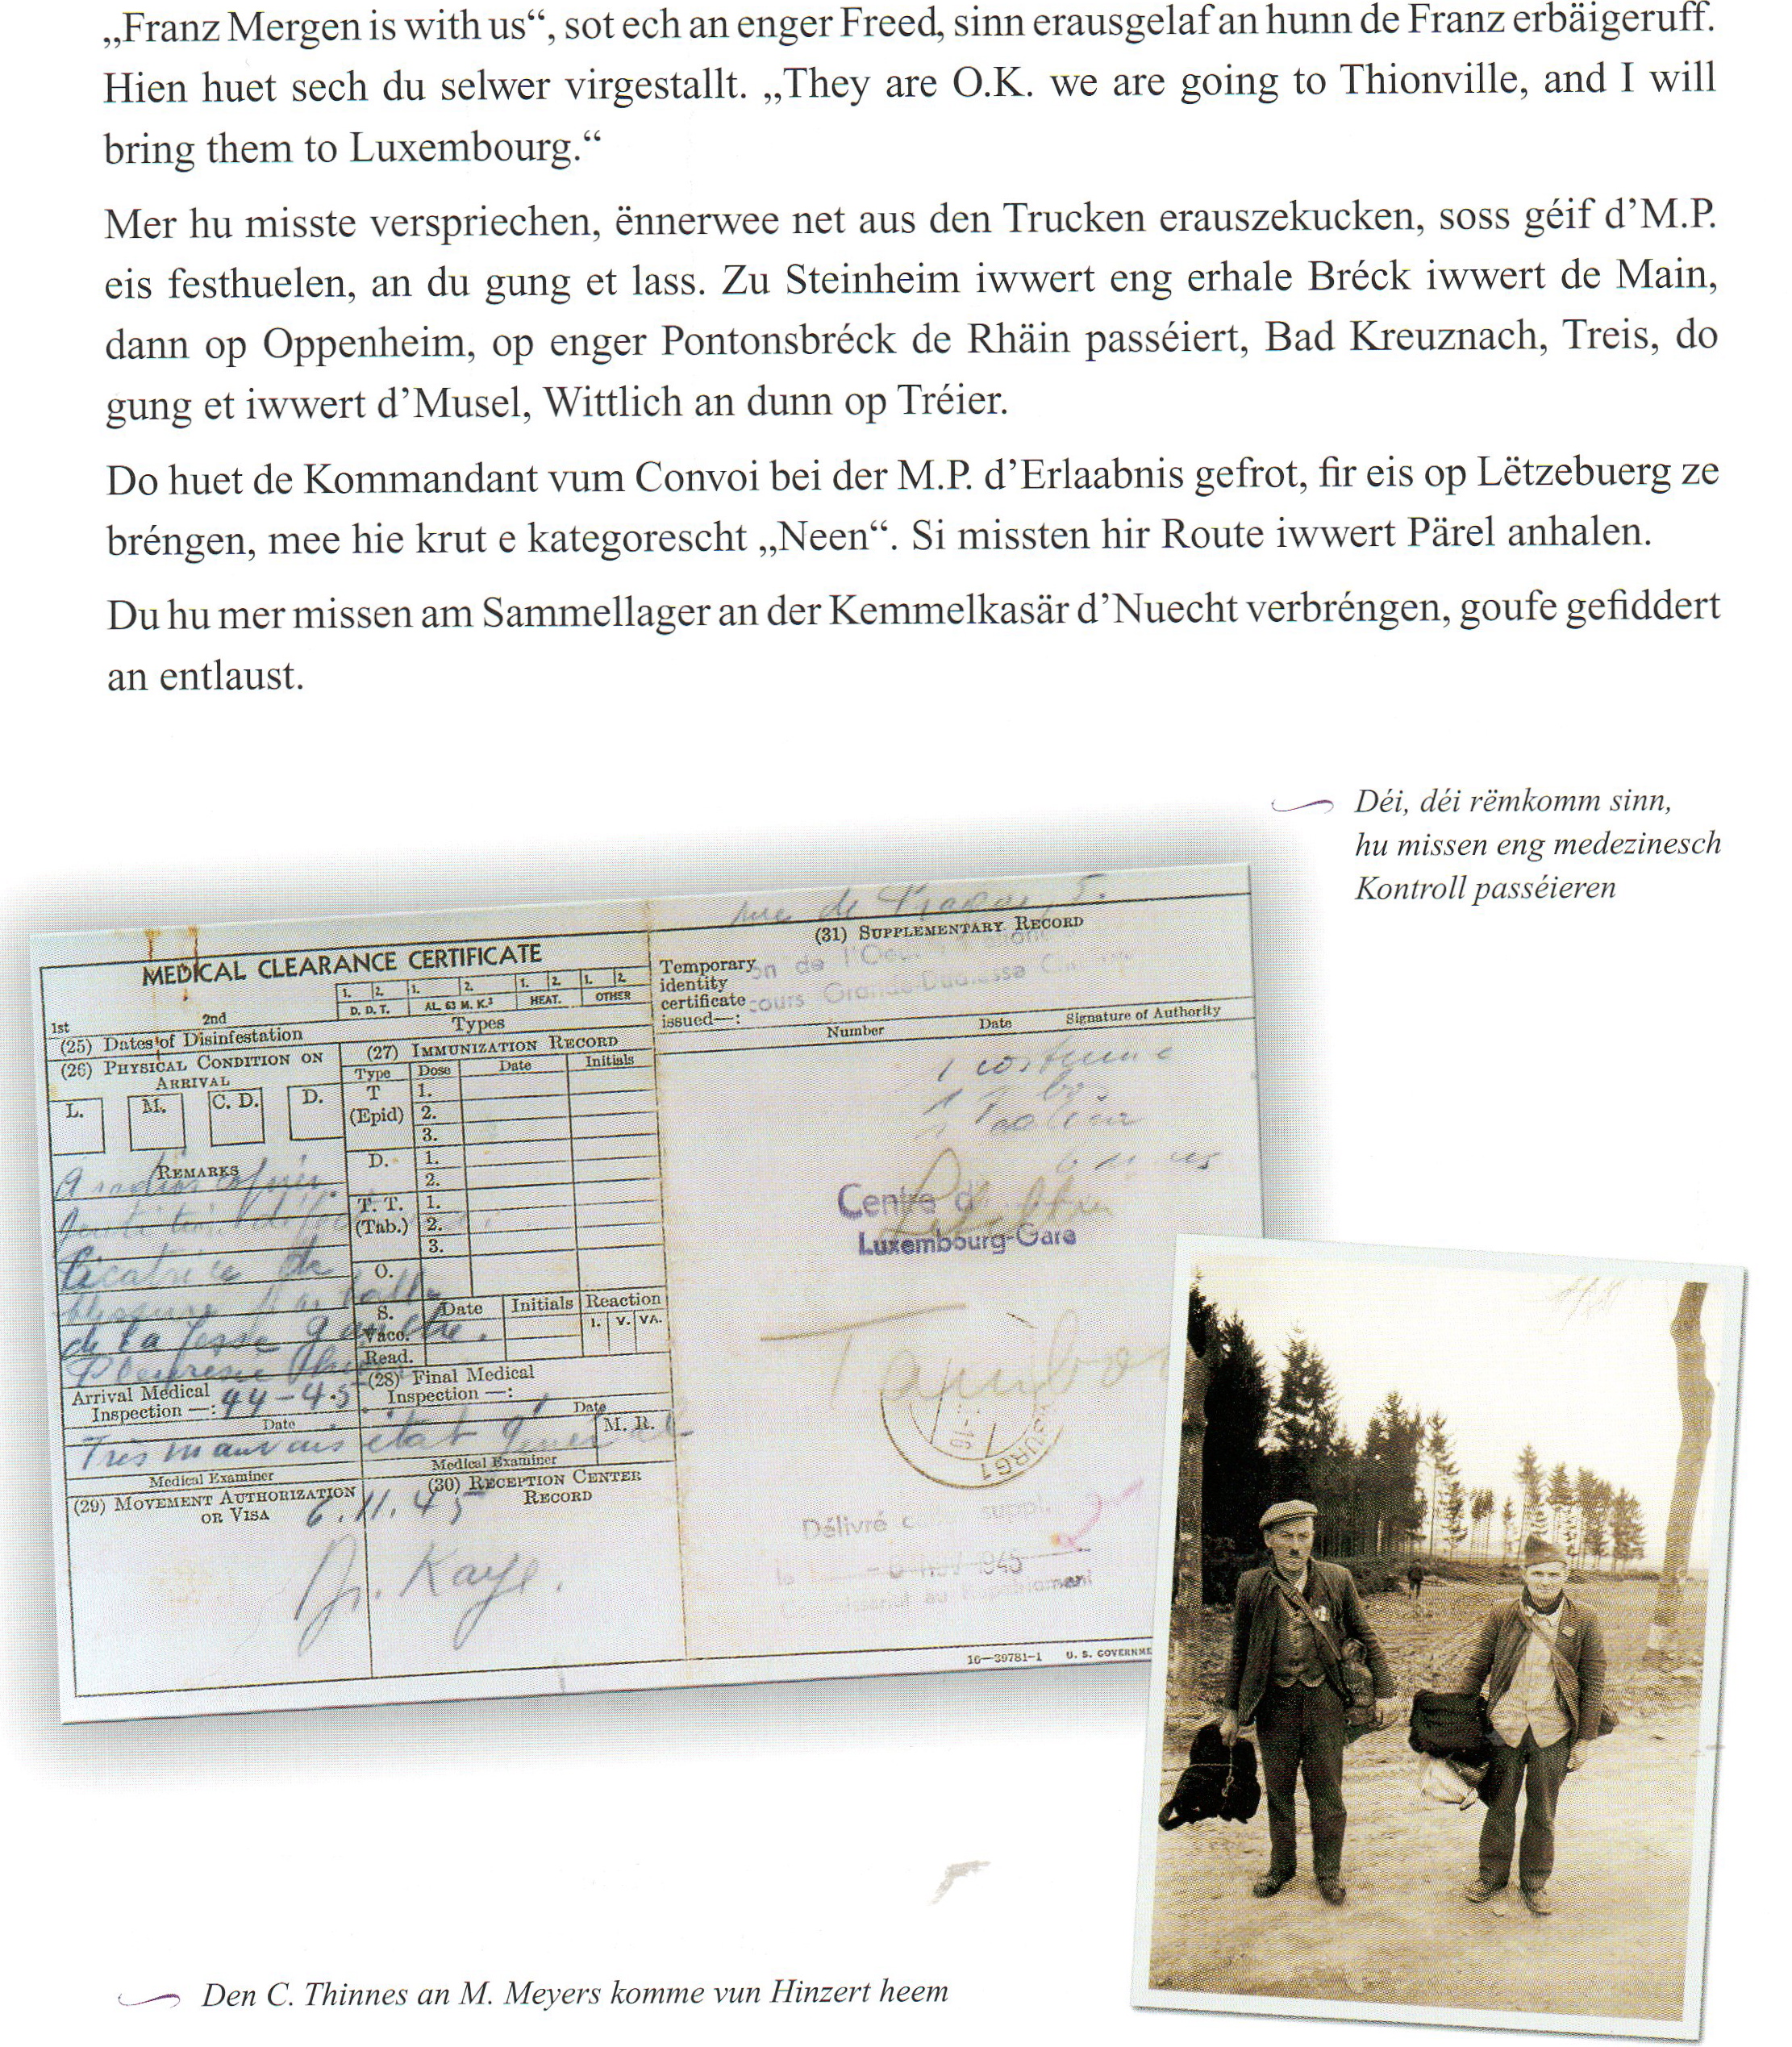 „Franz Mergen is with us“, sot ech an enger Freed, sinn erausgelaf an hunn de Franz erbäigeruff.
Hien huet sech du selwer virgestallt. „They are O.K. we are going to Thionville, and I will
bring them to Luxembourg.“
Mer hu misste verspriechen, ënnerwee net aus den Trucken erauszekucken, soss géif d’M.P.
eis festhuelen, an du gung et lass. Zu Steinheim iwwert eng erhale Bréck iwwert de Main,
dann op Oppenheim, op enger Pontonsbréck de Rhäin passéiert, Bad Kreuznach, Treis, do
gung et iwwert d’Musel, Wittlich an dunn op Tréier.
Do huet de Kommandant vum Convoi bei der M.P. d’Erlaabnis gefrot, fir eis op Lëtzebuerg ze
bréngen, mee hie krut e kategorescht „Neen“. Si missten hir Route iwwert Pärel anhalen.
Du hu mer missen am Sammellager an der Kemmelkasär d’Nuecht verbréngen, goufe gefiddert
an entlaust.
Déi, déi rëmkomm sinn,
hu missen eng medezinesch
Kontroll passéieren
MEDICAL CLEARANCE CERTIFICATE
1. 2. 1. 2. 1. 2. 1. 2.
D. D. T. AL. 63 M. K.3 HEAT. OTHER
1st 2nd Types
(25) Dates of Disinfestation
(26) PHYSICAL CONDITION ON
ARRIVAL
L. M. C. D. D.
REMARKS
Cicatrice de
de la fesse gauche.
Arrival Medical
Inspection —: 44-45
Date
Très mauvais état général
Medical Examiner
(27) IMMUNIZATION RECORD
Type Dose Date Initials
T
(Epid)
1.
2.
3.
D. 1.
2.
T. T.
(Tab.)
1.
2.
3.
O.
S. Date Initials Reaction
Vacc. 1. V. VA.
Read.
(28) Final Medical
Inspection —:
Date
M. R.
Medical Examiner
(29) MOVEMENT AUTHORIZATION
OR VISA
(30) RECEPTION CENTER
RECORD
6.11.45
Dr. Kaye.
rue de
(31) SUPPLEMENTARY RECORD
Temporary
identity
certificate
issued—:
de l'Oeu
Grande-Duchesse
Number Date Signature of Authority
1 costume
Centre d
Luxembourg-Gare
Délivré suppl.
1945
16—39781-1 U. S. GOVERNME
Den C. Thinnes an M. Meyers komme vun Hinzert heem